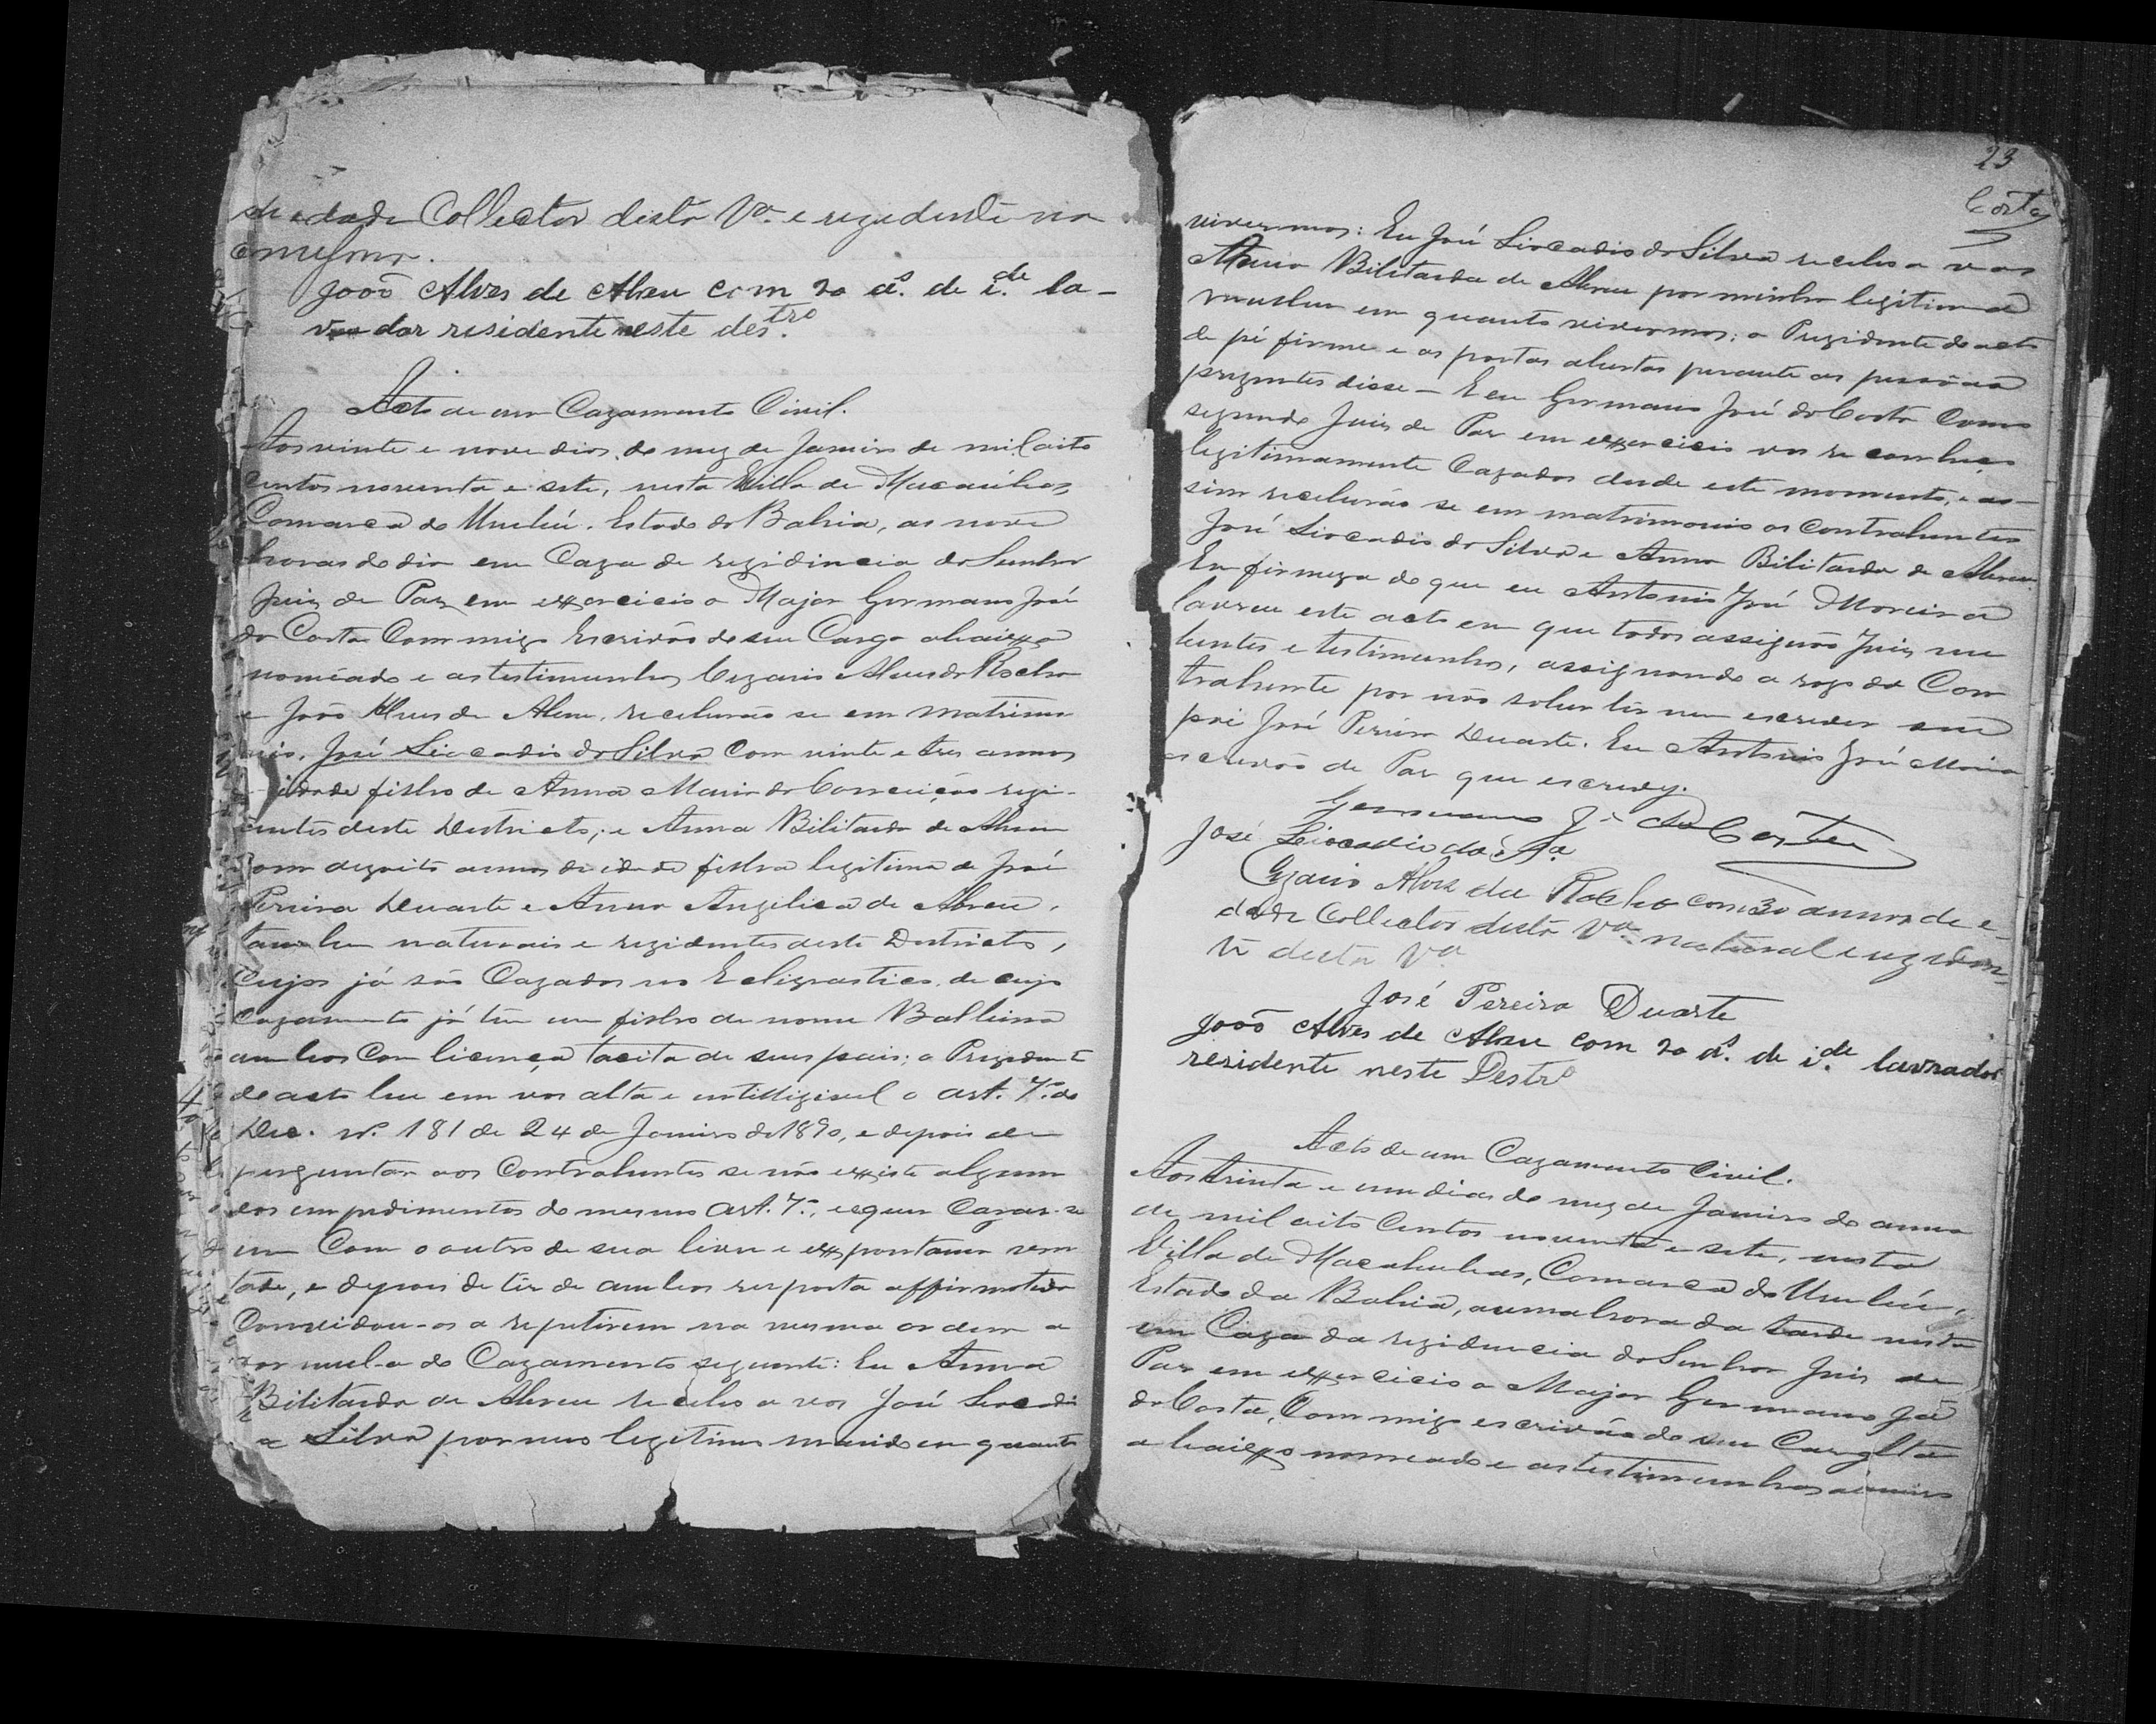 de edade Collector desta Vª e rezedente na
mesma.
João Alves de Abreu com 20 as. de i.de la-
vrador residente neste des.tro
Acto de um Cazamento Civil.
Aos vinte e nove dias do mez de Janeiro de mil oito
centos noventa e sete, nesta Villa de Macaúbas,
Comarca de Urubú, Estado da Bahia, as nove
horas do dia em Caza de rezidencia do Senhor
Juiz de Paz em exxercicio o Major Germano José
da Costa Commigo Escrivão de seu Cargo abaixxo
nomeado e as testimunhas Cezario Alves da Rocha
e João Alves de Abreu, receberão se em matrimo
nio, José Liocadio da Silva com vinte e tres annos
idade filho de Anna Maria da Conceição rezi-
entes deste Destricto; e Anna Bilitarda de Abreu
com dezoito annos de idade filha legitima de José
Pereira Duarte e Anna Angelica de Abreu,
tambem naturais e rezidentes deste Destricto,
Cujos já são Cazados no Ecligiastico, de cujo
Cazamento já têm um filho de nome
ambos com licença tacita de seus pais; o Prezidente
do acto leu em vos alta e intilligivel o art. 7º do
Dec. nº 181 de 24 de Janeiro de 1890, e depois de
perguntar aos Contrahentes se não exxiste algum
dos empedimentos do mesmo art. 7º, e quer Cazar-se
um Com o outro de sua livre e exxpontania vem
tade, e depois de têr de ambos resposta affirmativa
Convidou-os a repetirem na mesma ordem a
formula do Cazamento seguente: Eu Anna
Bilitarda de Abreu recebo a vos José Liocadio
a Silva por meu legitimo marido em quanto
23
Costa
vivermos: Eu José Liocadio da Silva recebo a vos
Anna Bilitarda de Abreu por minha legitima
mulher em quanto vivermos; o Prezidente do acto
de pé firme e as portas abertas perante as pessôas
prezentes disse — E eu Germano José da Costa Como
segundo Juiz de Paz em exxercicio vos reconheço
legitimamente Cazados desde este momento, e as-
sim receberão se em matrimonio os Contrahentes
José Liocadio da Silva e Anna Bilitarda de Abreu.
Em firmeza do que eu Antonio José Moreira
lavrei este acto em que todos assignão Juiz
bentes e testimunhas, assignando a rogo da Con
trahente por não saber lêr nem escrever seu
pai José Pereira Duarte. Eu Antonio José Moreira
escrivão de Paz que escrevy.
Germano Jé da Costa
José Liocadio da Sª
Cezario Alves da Rocha com 30 annos de e-
dade Collector desta Vª natural e rezeden-
te desta Vª
José Pereira Duarte
João Alves de Abreu com 20 as. de i.de lavrador
rezidente neste Destrº
Acto de um Cazamento Civil.
Aos trinta e um dias do mez de Janeiro do anno
de mil oito Centos noventa e sete, nesta
Villa de Macahubas, Comarca do Urubú,
Estado da Bahia, a uma hora da tarde nesta
em Caza da rezidencia do Senhor Juiz de
Paz em exxercicio o Major Germano José
da Costa, Commigo escrivão do seu Cargo
abaixxo nomeado e as testimunhas